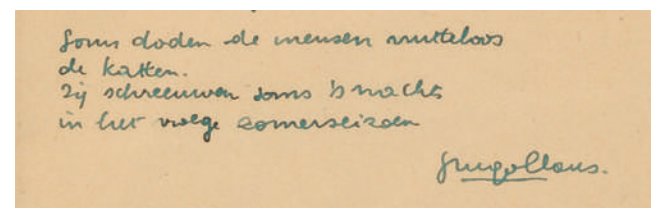 Soms doden de mensen nutteloos
de katten.
Zij schreeuwen soms 's nachts
in het vroege zomerseizoen
Hugo Claus.